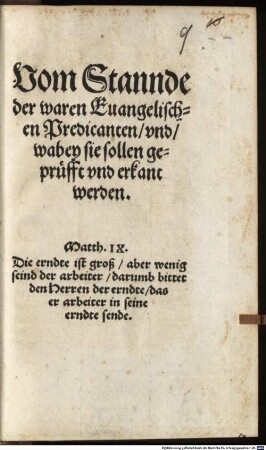 Vom Stannde
der waren Euangelisch-
en Predicanten/vnd/
wabey sie sollen ge-
prüfft vnd erkant
werden.
Matth. IX.
Die erndte ist groß/aber wenig
seind der arbeiter/darumb bittet
den Herren der erndte/das
er arbeiter in seine
erndte sende.